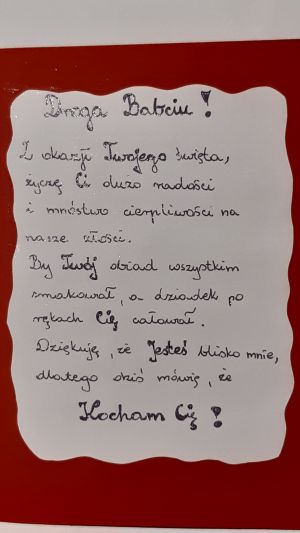 Droga Babciu!
Z okazji Twojego święta,
życzę Ci dużo radości
i mnóstwo cierpliwości na
nasze złości.
By Twój obiad wszystkim
smakował, a dziadek po
rękach Cię całował.
Dziękuję, że Jesteś blisko mnie,
dlatego dziś mówię, że
Kocham Cię!